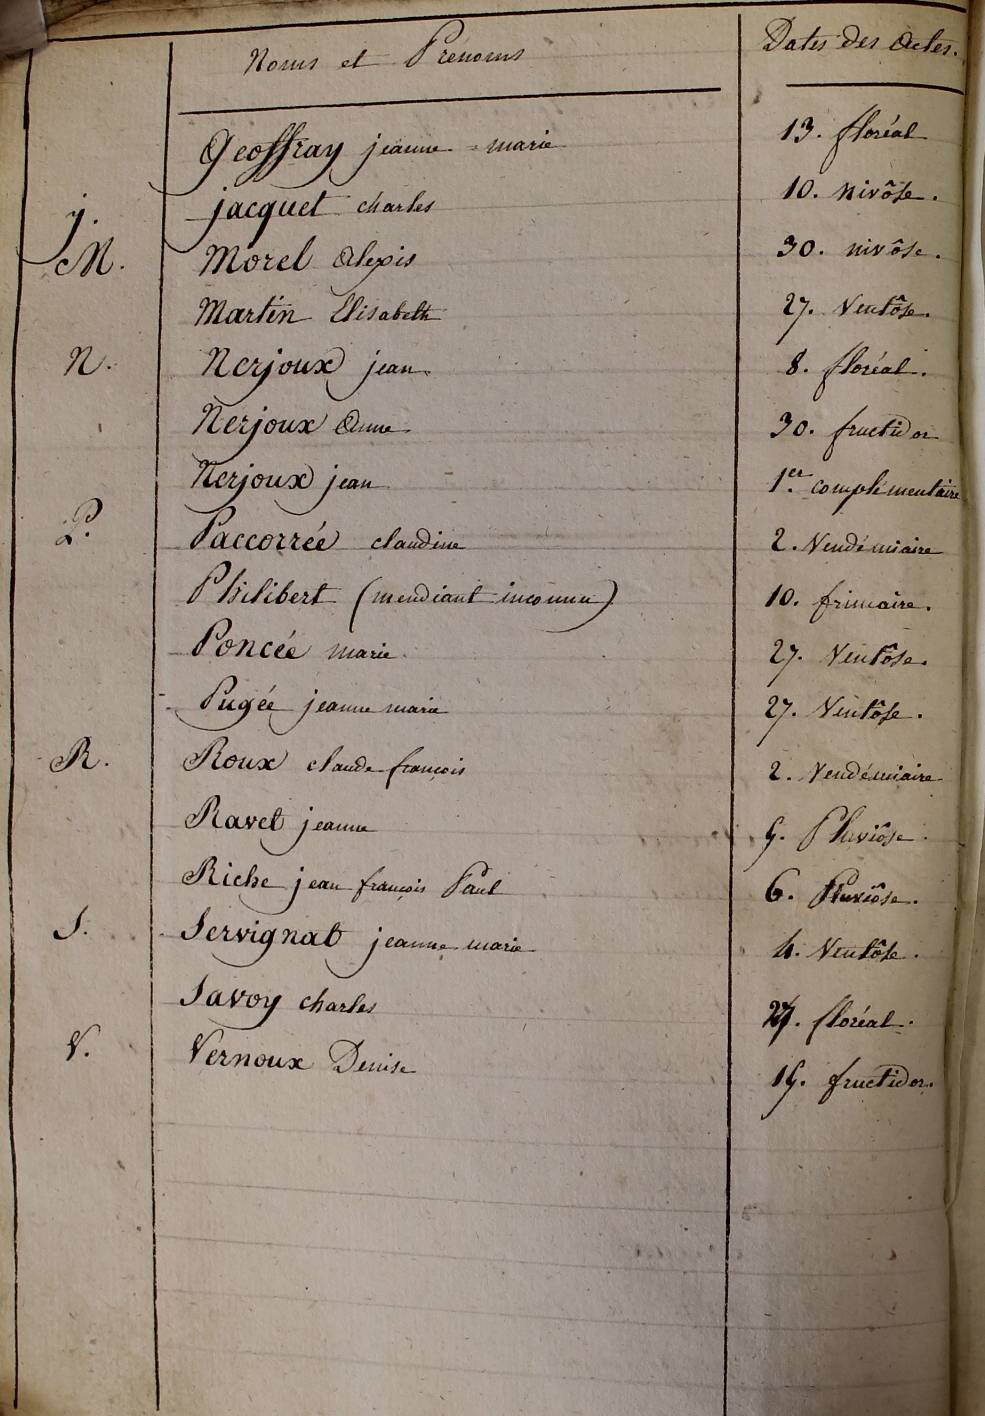 Noms et Prénoms Dates des Actes.
Geoffray jeanne marie 13. floréal
j. jacquet charles 10. nivôse.
M. Morel Alexis 30. nivôse.
Martin Elisabeth 27. Ventôse.
N. Nerjoux jean 8. floréal.
Nerjoux Anne 30. fructidor
Nerjoux jean 1.er complémentaire
P. Paccorrée claudine 2. Vendémiaire
Philibert (mendiant inconnu) 10. frimaire.
Poncée marie 27. Ventôse.
Pugée jeanne marie 27. Ventôse.
R. Roux claude françois 2. Vendémiaire
Ravet jeanne Pluviôse.
Riche jean françois Paul 6. Pluviôse.
S. Servignat jeanne marie 4. Ventôse.
Savoy charles floréal.
V. Vernoux Denise fructidor.